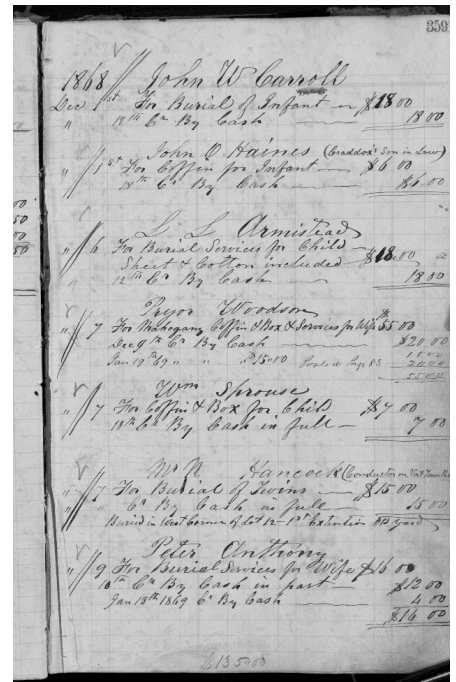 359
1868 John W Carroll
Dec 1st For Burial of Infant $18 00
" 12th Cr By Cash 18 00
John O Haines (Craddox's Son in Law)
" 1st For Coffin for Infant $6 00
18th Cr By Cash $6 00
L L Armistead
" 6 For Burial Services for Child
Sheet & Cotton included $18 00
12th Cr By Cash 18 00
Pryor Woodson
" 7 For Mahogany Coffin & Box & Services for Wife 55 00
Dec 9th Cr By Cash $20 00
Jan 19th 69 " " " 15.00 Page 83 15 00
20 00
55 00
Wm Sprouse
" 7 For Coffin & Box for Child $7 00
18th Cr By Cash in full 7 00
Mr N Hancock (Conductor on
" 7 For Burial of Twins $15 00
" Cr By Cash in full 15 00
Buried in West Corner of Lot 12 - 1st Extention yard
Peter Anthony
" 9 For Burial Services for Wife $16 00
10th Cr By Cash in part $12 00
Jan 13th 1869 Cr By Cash 4 00
$16 00
$135.00